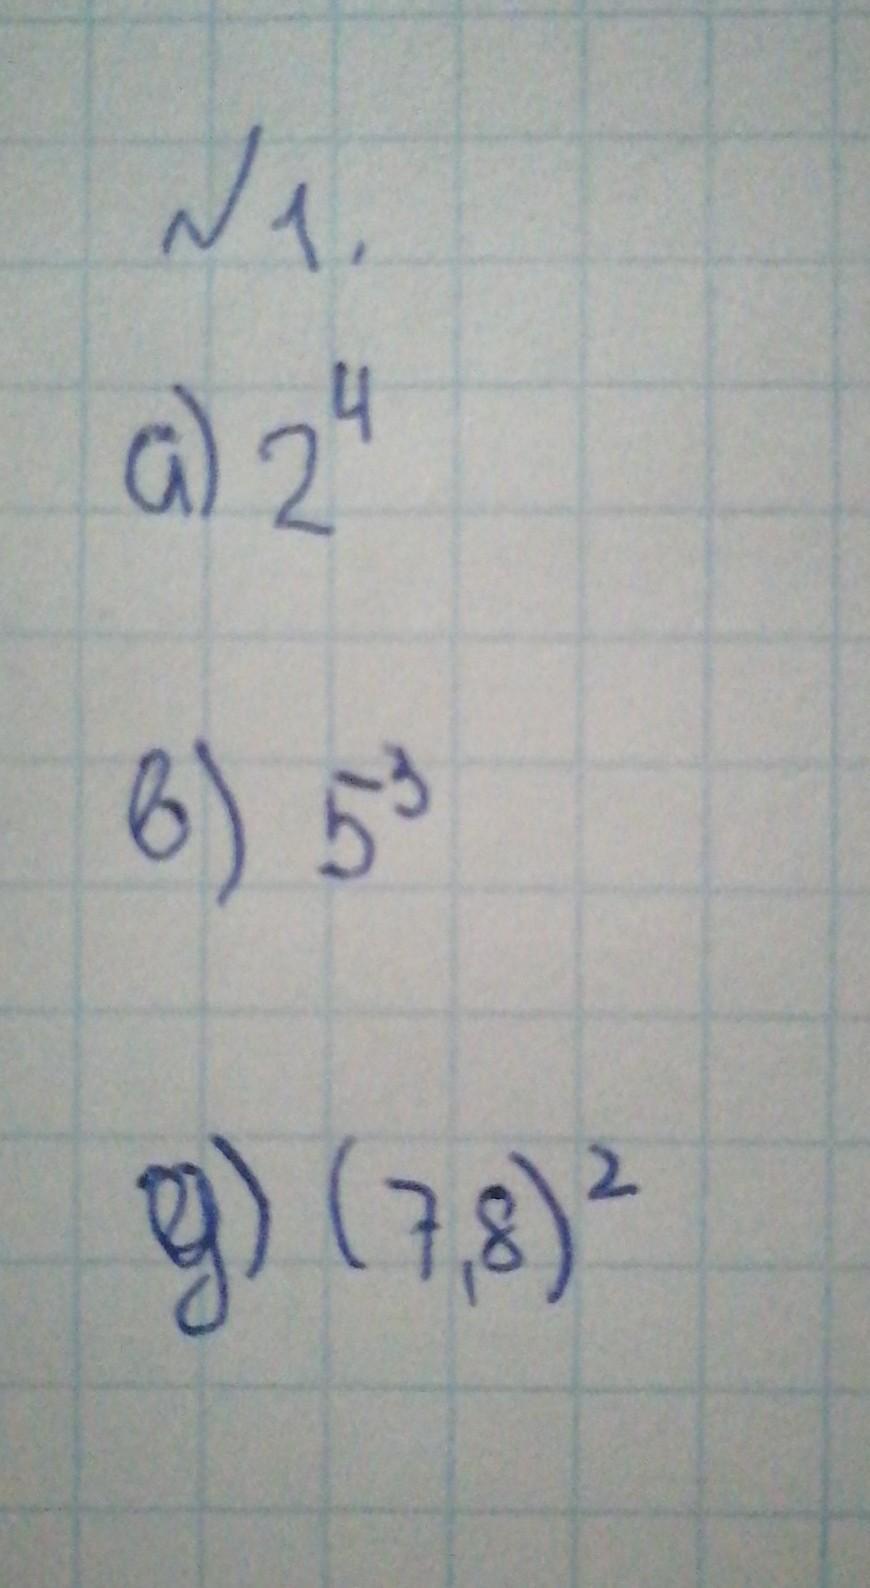 №1.
а) 2⁴
в) 5³
д) (7,8)²